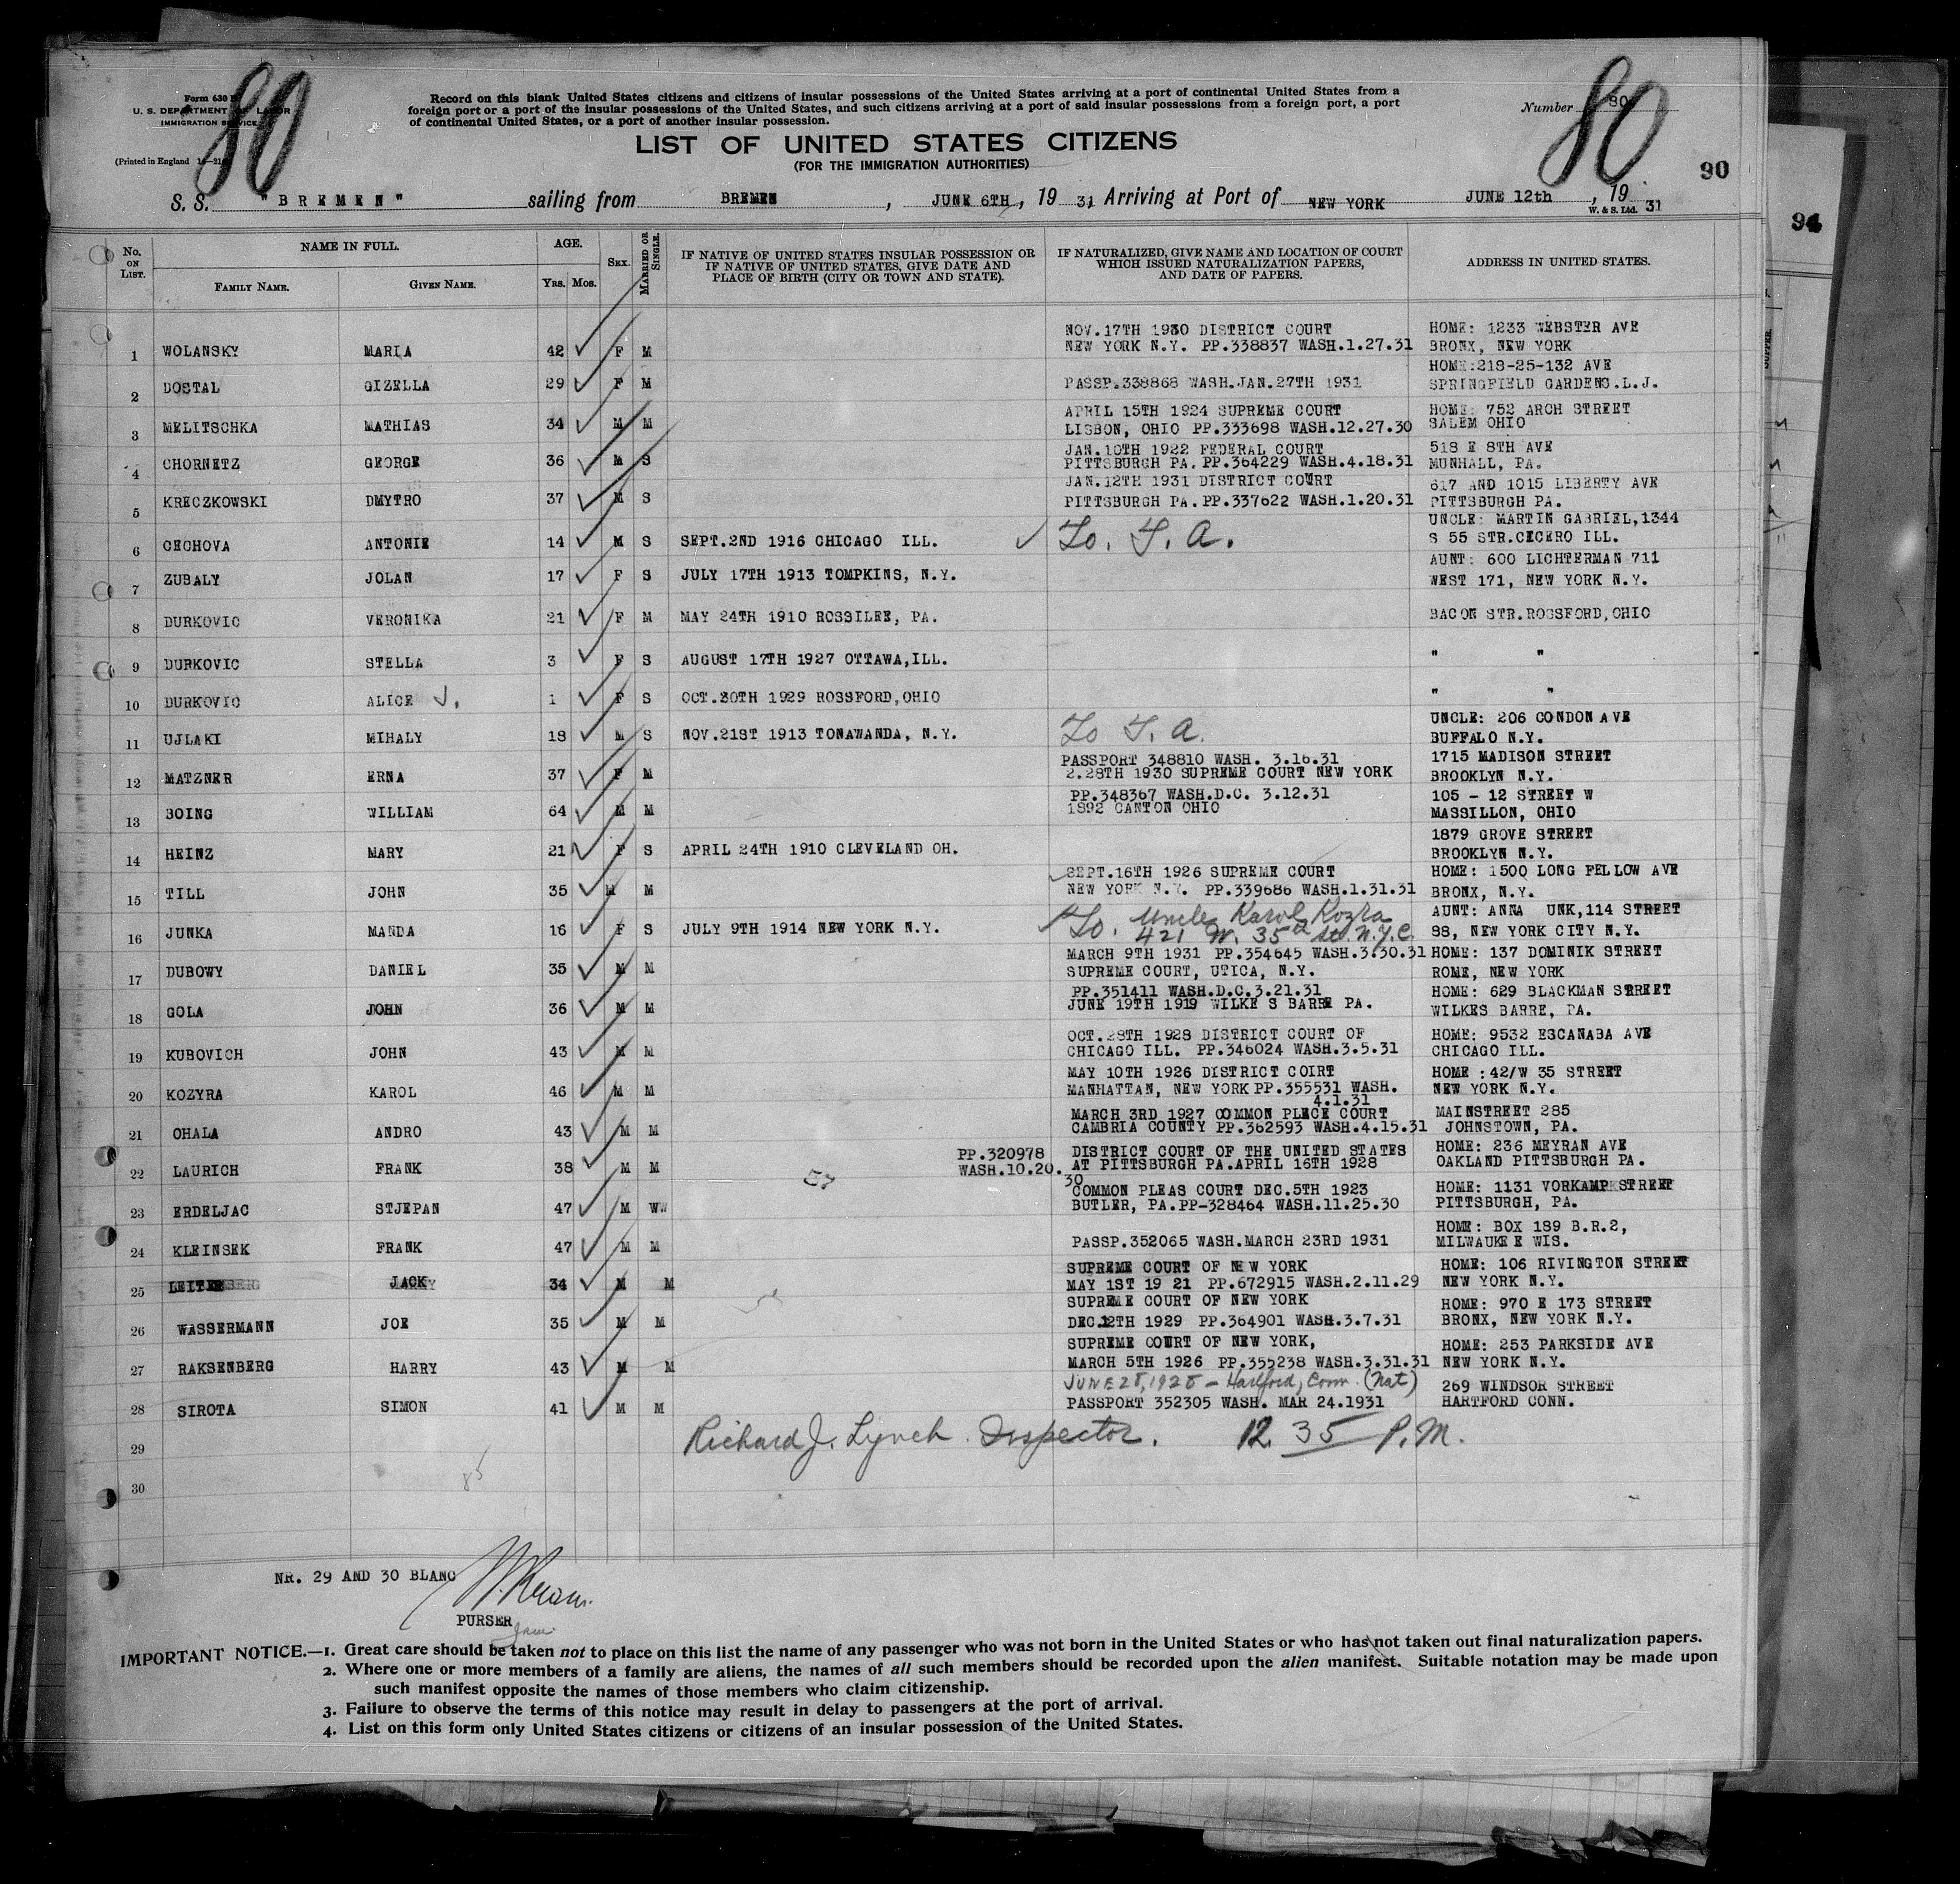 Form 630 B
U. S. DEPARTMENT OF LABOR
IMMIGRATION SERVICE
(Printed in England
80
Record on this blank United States citizens and citizens of insular possessions of the United States arriving at a port of continental United States from a
foreign port or a port of the insular possessions of the United States, and such citizens arriving at a port of said insular possessions from a foreign port, a port
of continental United States, or a port of another insular possession.
Number 80
80
LIST OF UNITED STATES CITIZENS
(FOR THE IMMIGRATION AUTHORITIES)
90
S. S. "BREMEN" sailing from BREMEN, JUNE 6TH, 19 31 Arriving at Port of NEW YORK JUNE 12th, 19 31
W. & S. Ltd.
94
No. ON LIST. NAME IN FULL. AGE. SEX. MARRIED OR SINGLE. IF NATIVE OF UNITED STATES INSULAR POSSESSION OR IF NATIVE OF UNITED STATES, GIVE DATE AND PLACE OF BIRTH (CITY OR TOWN AND STATE). IF NATURALIZED, GIVE NAME AND LOCATION OF COURT WHICH ISSUED NATURALIZATION PAPERS, AND DATE OF PAPERS. ADDRESS IN UNITED STATES.
FAMILY NAME. GIVEN NAME. YRS. MOS.
NOV.17TH 1930 DISTRICT COURT HOME: 1233 WEBSTER AVE
1 WOLANSKY MARIA 42 F M NEW YORK N.Y. PP.338837 WASH.1.27.31 BRONX, NEW YORK
HOME:218-25-132 AVE
2 DOSTAL GIZELLA 29 F M PASSP.338868 WASH.JAN.27TH 1931 SPRINGFIELD GARDENS.L.J.
APRIL 15TH 1924 SUPREME COURT HOME: 752 ARCH STREET
3 MELITSCHKA MATHIAS 34 M M LISBON, OHIO PP.333698 WASH.12.27.30 SALEM OHIO
JAN.10TH 1922 FEDERAL COURT 518 E 8TH AVE
4 CHORNETZ GEORGE 36 M S PITTSBURGH PA. PP.364229 WASH.4.18.31 MUNHALL, PA.
JAN.12TH 1931 DISTRICT COURT 617 AND 1015 LIBERTY AVE
5 KRECZKOWSKI DMYTRO 37 M S PITTSBURGH PA. PP.337622 WASH.1.20.31 PITTSBURGH PA.
UNCLE: MARTIN GABRIEL,1344
6 CECHOVA ANTONIE 14 M S SEPT.2ND 1916 CHICAGO ILL. To. T. A. S 55 STR.CICERO ILL.
AUNT: 600 LICHTERMAN 711
7 ZUBALY JOLAN 17 F S JULY 17TH 1913 TOMPKINS, N.Y. WEST 171, NEW YORK N.Y.
8 DURKOVIC VERONIKA 21 F M MAY 24TH 1910 ROSSILEE, PA. BACON STR.ROSSFORD,OHIO
9 DURKOVIC STELLA 3 F S AUGUST 17TH 1927 OTTAWA,ILL. " "
10 DURKOVIC ALICE J. 1 F S OCT.30TH 1929 ROSSFORD,OHIO " "
UNCLE: 206 CONDON AVE
11 UJLAKI MIHALY 18 M S NOV.21ST 1913 TONAWANDA, N.Y. To T. A. BUFFALO N.Y.
PASSPORT 348810 WASH. 3.16.31 1715 MADISON STREET
12 MATZNER ERNA 37 F M 2.28TH 1930 SUPREME COURT NEW YORK BROOKLYN N.Y.
PP.348367 WASH.D.C. 3.12.31 105 - 12 STREET W
13 BOING WILLIAM 64 M M 1892 CANTON OHIO MASSILLON, OHIO
1879 GROVE STREET
14 HEINZ MARY 21 F S APRIL 24TH 1910 CLEVELAND OH. BROOKLYN N.Y.
SEPT.16TH 1926 SUPREME COURT HOME: 1500 LONG FELLOW AVE
15 TILL JOHN 35 M M NEW YORK N.Y. PP.339686 WASH.1.31.31 BRONX, N.Y.
To. Uncle Karol Kozra AUNT: ANNA UNK,114 STREET
16 JUNKA MANDA 16 F S JULY 9TH 1914 NEW YORK N.Y. 421 W. 35th St. N.Y.C. 88, NEW YORK CITY N.Y.
MARCH 9TH 1931 PP.354645 WASH.3.30.31 HOME: 137 DOMINIK STREET
17 DUBOWY DANIEL 35 M M SUPREME COURT, UTICA, N.Y. ROME, NEW YORK
PP.351411 WASH.D.C.3.21.31 HOME: 629 BLACKMAN STREET
18 GOLA JOHN 36 M M JUNE 19TH 1919 WILKE S BARRE PA. WILKES BARRE, PA.
OCT.28TH 1928 DISTRICT COURT OF HOME: 9532 ESCANABA AVE
19 KUBOVICH JOHN 43 M M CHICAGO ILL. PP.346024 WASH.3.5.31 CHICAGO ILL.
MAY 10TH 1926 DISTRICT COIRT HOME :42/W 35 STREET
20 KOZYRA KAROL 46 M M MANHATTAN, NEW YORK PP.355531 WASH. NEW YORK N.Y.
4.1.31
MARCH 3RD 1927 COMMON PLECE COURT MAINSTREET 285
21 OHALA ANDRO 43 M M CAMBRIA COUNTY PP.362593 WASH.4.15.31 JOHNSTOWN, PA.
PP.320978 DISTRICT COURT OF THE UNITED STATES HOME: 236 MEYRAN AVE
22 LAURICH FRANK 38 M M WASH.10.20.30 AT PITTSBURGH PA.APRIL 16TH 1928 OAKLAND PITTSBURGH PA.
COMMON PLEAS COURT DEC.5TH 1923 HOME: 1131 VORKAMP STREET
23 ERDELJAC STJEPAN 47 M WW BUTLER, PA.PP-328464 WASH.11.25.30 PITTSBURGH, PA.
HOME: BOX 189 B.R.2,
24 KLEINSEK FRANK 47 M M PASSP.352065 WASH.MARCH 23RD 1931 MILWAUKEE WIS.
SUPREME COURT OF NEW YORK HOME: 106 RIVINGTON STREET
25 JACK 34 M M MAY 1ST 19 21 PP.672915 WASH.2.11.29 NEW YORK N.Y.
SUPREME COURT OF NEW YORK HOME: 970 E 173 STREET
26 WASSERMANN JOE 35 M M DEC.12TH 1929 PP.364901 WASH.3.7.31 BRONX, NEW YORK N.Y.
SUPREME COURT OF NEW YORK, HOME: 253 PARKSIDE AVE
27 RAKSENBERG HARRY 43 M M MARCH 5TH 1926 PP.355238 WASH.3.31.31 NEW YORK N.Y.
JUNE 25, 1928 - Hartford, Conn. (Nat) 269 WINDSOR STREET
28 SIROTA SIMON 41 M M PASSPORT 352305 WASH. MAR 24.1931 HARTFORD CONN.
29 Richard J. Lynch Inspector. 12.35 P.M.
30
NR. 29 AND 30 BLANC
PURSER
IMPORTANT NOTICE.—1. Great care should be taken not to place on this list the name of any passenger who was not born in the United States or who has not taken out final naturalization papers.
2. Where one or more members of a family are aliens, the names of all such members should be recorded upon the alien manifest. Suitable notation may be made upon
such manifest opposite the names of those members who claim citizenship.
3. Failure to observe the terms of this notice may result in delay to passengers at the port of arrival.
4. List on this form only United States citizens or citizens of an insular possession of the United States.